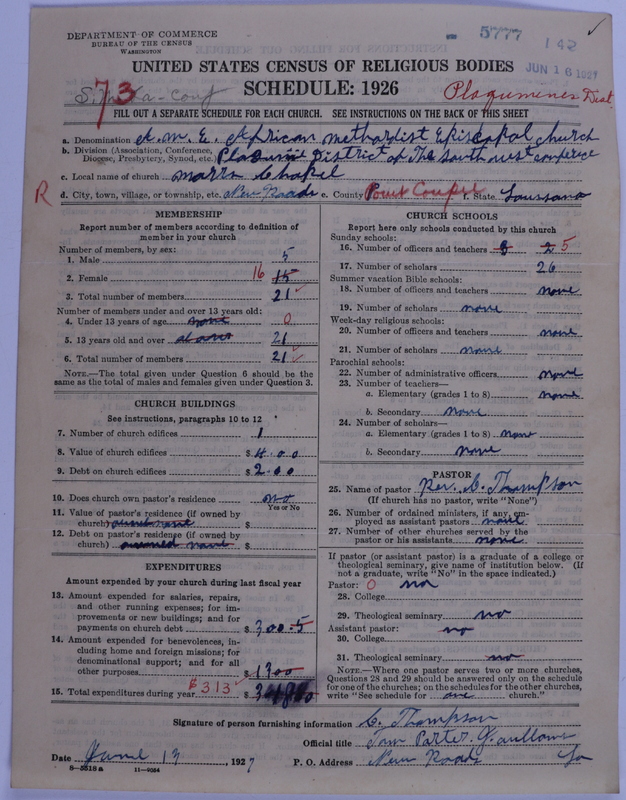 DEPARTMENT OF COMMERCE
BUREAU OF THE CENSUS
WASHINGTON
5777
142
JUN 16 1927
UNITED STATES CENSUS OF RELIGIOUS BODIES
SCHEDULE: 1926
73
Plaquemines Dist
FILL OUT A SEPARATE SCHEDULE FOR EACH CHURCH. SEE INSTRUCTIONS ON THE BACK OF THIS SHEET
a. Denomination A. M. E. African Methodist Episcopal church
b. Division (Association, Conference, Diocese, Presbytery, Synod, etc. District of The South west conference
c. Local name of church Chapel
R d. City, town, village, or township, etc. New Roads e. County Point Coupee f. State
MEMBERSHIP
Report number of members according to definition of
member in your church
Number of members, by sex:
1. Male 5
2. Female 16 15
3. Total number of members 21
Number of members under and over 13 years old:
4. Under 13 years of age none 0
5. 13 years old and over 21
6. Total number of members 21
NOTE.—The total given under Question 6 should be
same as the total of males and females given under Question 3.
CHURCH BUILDINGS
See instructions, paragraphs 10 to 12
7. Number of church edifices 1
8. Value of church edifices $ 400
9. Debt on church edifices $ 200
10. Does church own pastor's residence no
Yes or No
11. Value of pastor's residence (if owned by
church) $
12. Debt on pastor's residence (if owned by
church) $
EXPENDITURES
Amount expended by your church during last fiscal year
13. Amount expended for salaries, repairs,
and other running expenses; for im-
provements or new buildings; and for
payments on church debt $ 300.5
14. Amount expended for benevolences, in-
cluding home and foreign missions; for
denominational support; and for all
other purposes $ 1300
15. Total expenditures during year $313 $
CHURCH SCHOOLS
Report here only schools conducted by this church
Sunday schools:
16. Number of officers and teachers 8 2 5
17. Number of scholars 26
Summer vacation Bible schools:
18. Number of officers and teachers none
19. Number of scholars none
Week-day religious schools:
20. Number of officers and teachers none
21. Number of scholars none
Parochial schools:
22. Number of administrative officers none
23. Number of teachers—
a. Elementary (grades 1 to 8) none
b. Secondary none
24. Number of scholars—
a. Elementary (grades 1 to 8) none
b. Secondary none
PASTOR
25. Name of pastor Rev. C. Thompson
(If church has no pastor, write "None")
26. Number of ordained ministers, if any, em-
ployed as assistant pastors none
27. Number of other churches served by the
pastor or his assistants none
If pastor (or assistant pastor) is a graduate of a college or
theological seminary, give name of institution below. (If
not a graduate, write "No" in the space indicated.)
Pastor: 0 no
28. College
29. Theological seminary no
Assistant pastor: no
30. College
31. Theological seminary no
NOTE.—Where one pastor serves two or more churches,
Questions 28 and 29 should be answered only on the schedule
for one of the churches; on the schedules for the other churches,
write "See schedule for one church."
Signature of person furnishing information C. Thompson
Official title
Date June 13, 1927 P. O. Address New Roads La
8—5518 a 11—9034